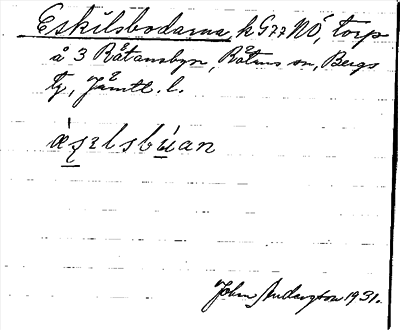 Eskilsbodarna, k G77 NÖ, torp
å 3 Råtansbyn, Råtans sn, Bergs
tg, Jämtl. l.
ǽʂelsbúan
John Anderzton 1931.